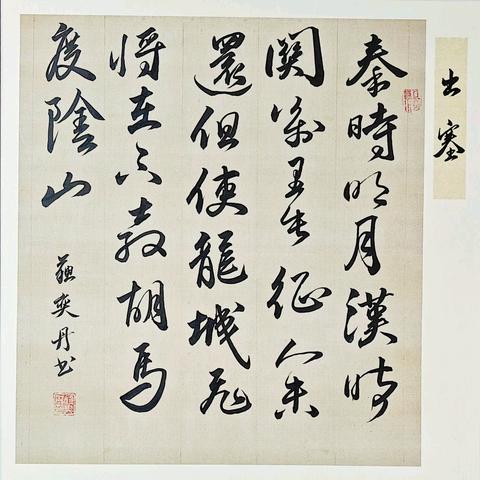 出塞
秦時明月漢時
關萬里長征人未
還但使龍城飛
将在不教胡馬
度陰山
蘇奕丹书